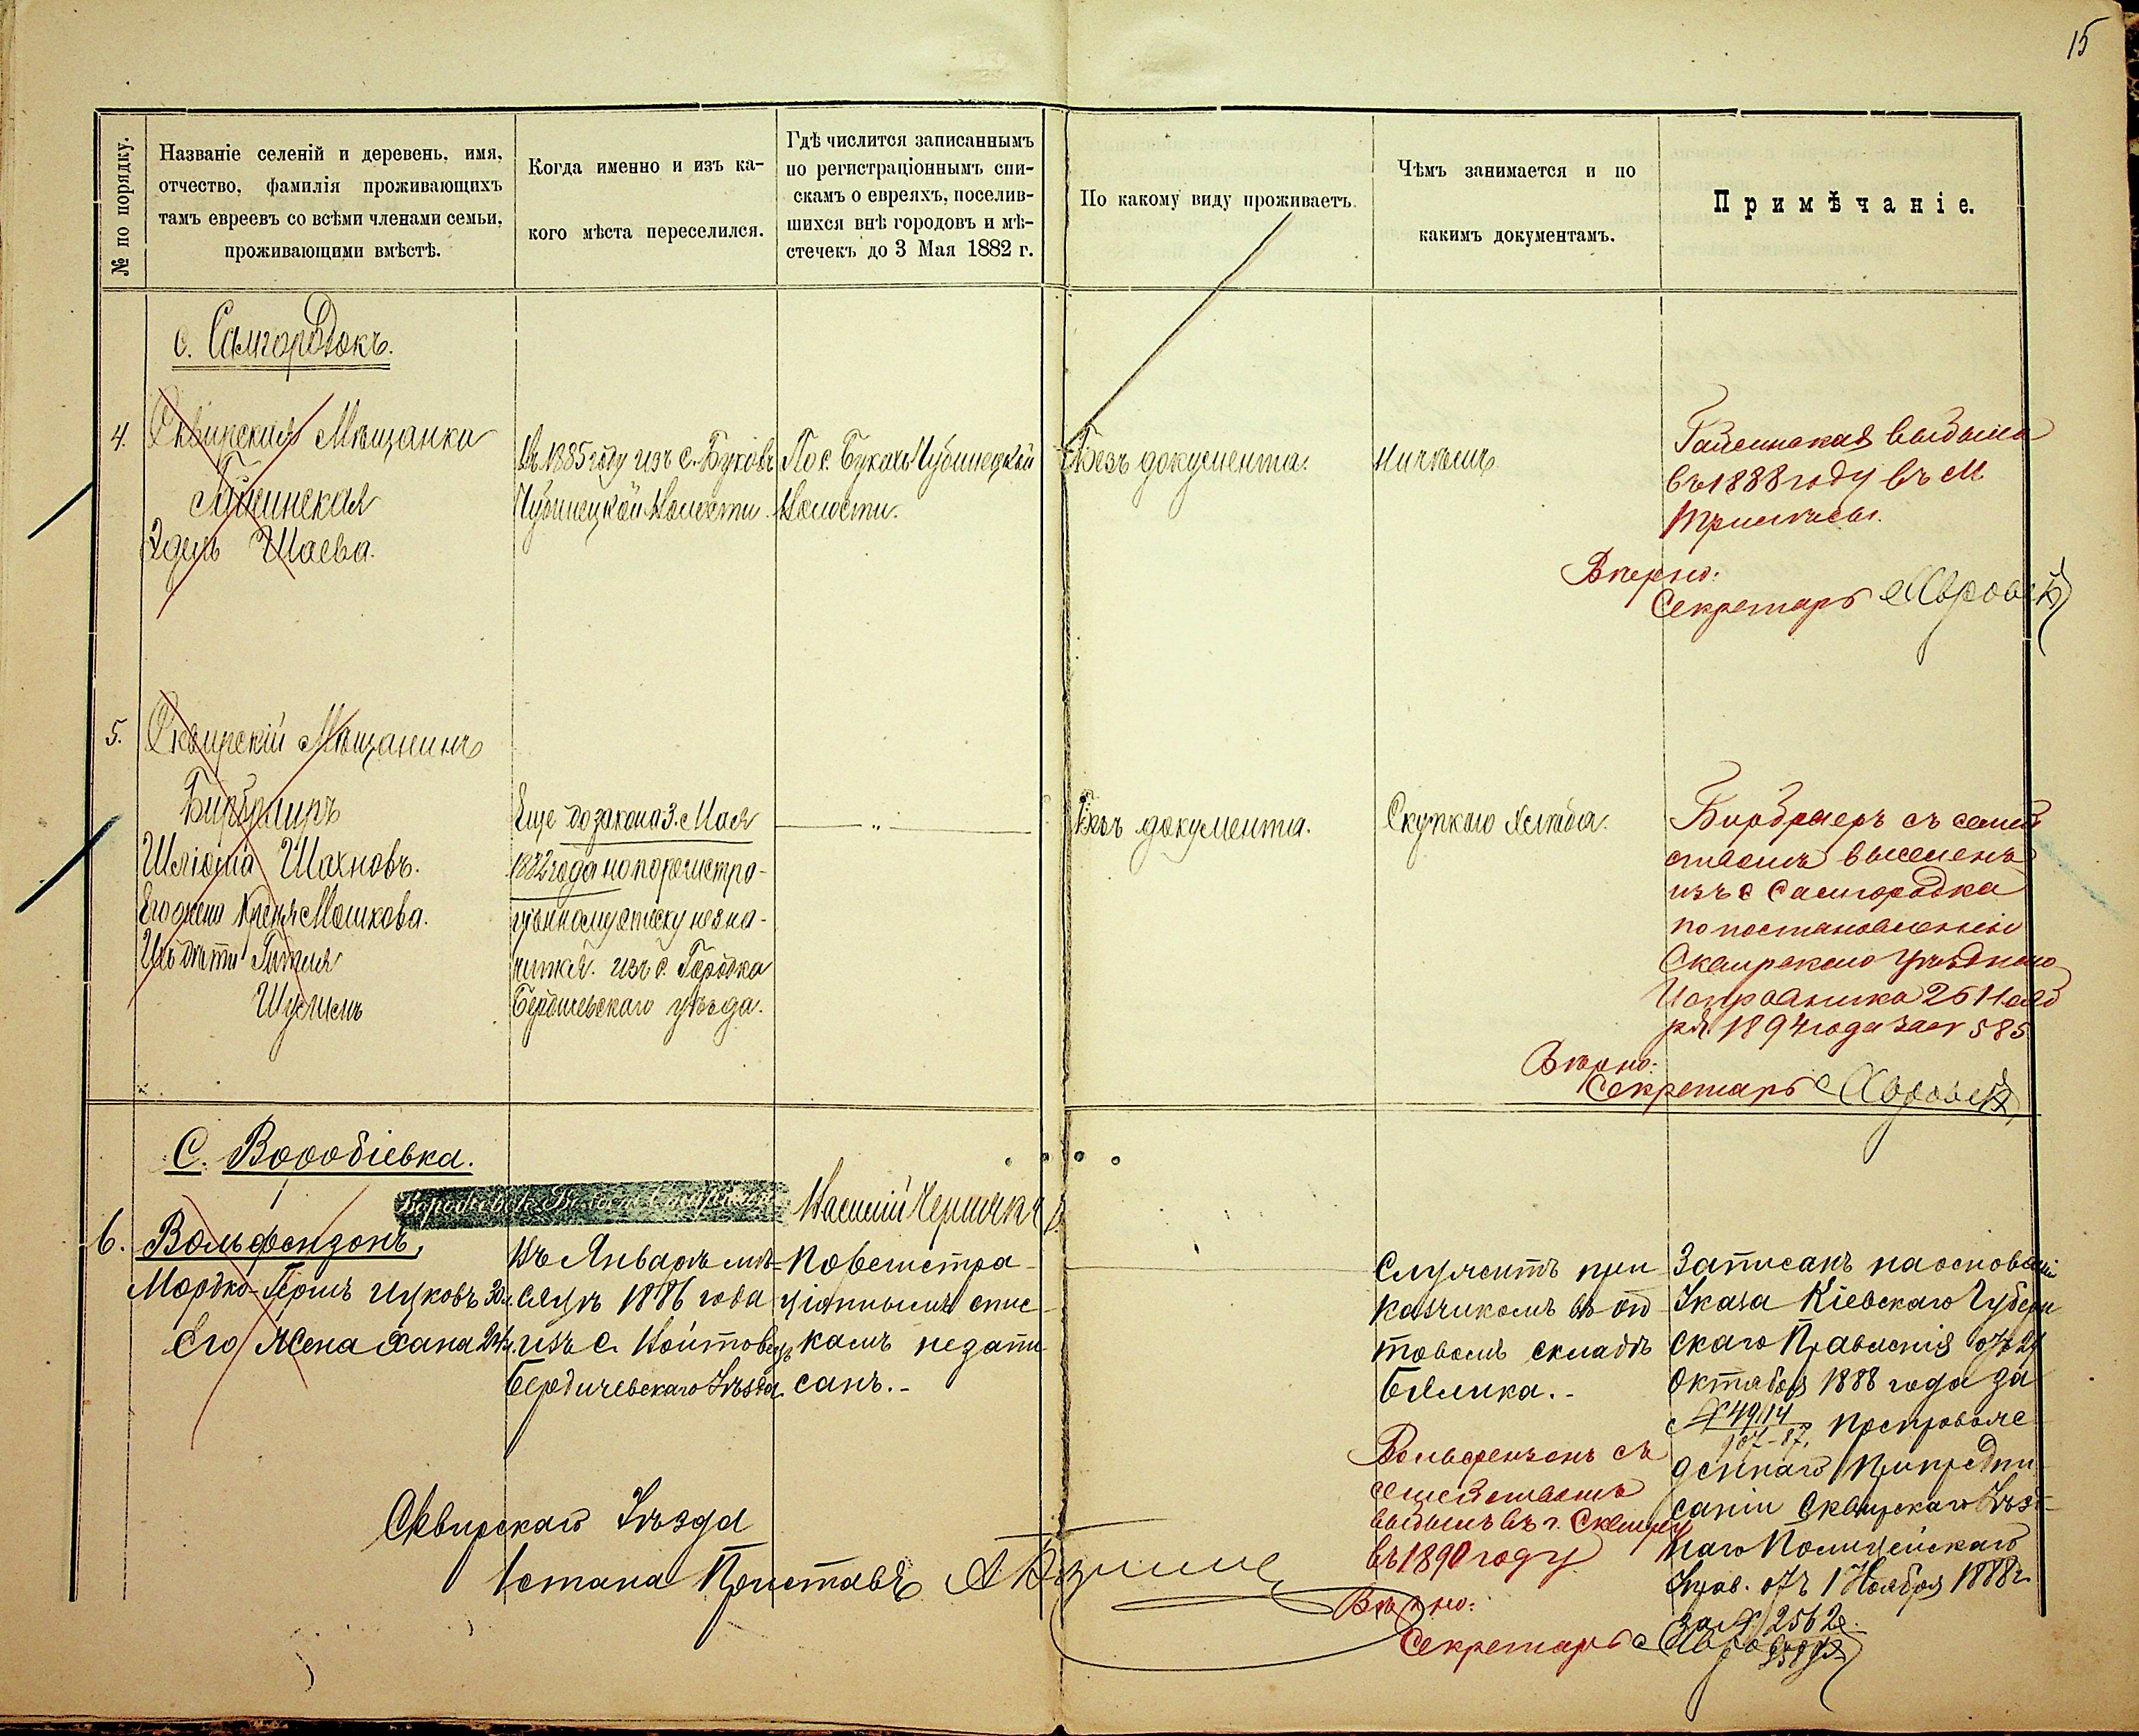 15
№ по порядку.
Названіе селеній и деревень, имя,
отчество, фамилія проживающихъ
тамъ евреевъ со всѣми членами семьи,
проживающими вмѣстѣ.
Когда именно и изъ ка-
кого мѣста переселился.
Гдѣ числится записаннымъ
по регистраціоннымъ спи-
скамъ о евреяхъ, поселив-
шихся внѣ городовъ и мѣ-
стечекъ до 3 Мая 1882 г.
По какому виду проживаетъ.
Чѣмъ занимается и по
какимъ документамъ.
Примѣчаніе.
с. Самгородокъ.
4.
Сквирская Мѣщанка
Эдель Шаева.
Въ 1885 году изъ с. Буковъ
Чубинецкой Волости.
По с. Букахъ Чубинецкой
Волости.
Безъ документа.
Ничѣмъ
выбыла
въ 1888 году въ м
Вѣрно:
Секретарь
5.
Сквирскій Мѣщанинъ
Бирбраиръ
Шлiома Шахновъ.
Его жена Мошкова.
Ихъ дѣти Гитля
Шулимъ
Еще до закона 3. Мая
1882 года но по регистра-
ціонному списку не зна-
чится. изъ с. Городка
Бердичевскаго уѣзда.
— „ —
Безъ документа.
Скупкаю хлѣба.
Бирбраеръ съ семей
ствомъ выселенъ
изъ с Самгородка
по постановленію
Сквирскаго Уѣзднаго
Исправника 26 Нояб
ря 1894 года за № 585
Вѣрно:
Секретарь
С. Воробіевка.
Василій
6.
Вольфензонъ,
Мордко-Гершъ Ицковъ 30 л.
Его Жена Хана 24 л.
Въ Январѣ мѣ-
сяцѣ 1886 года
изъ с. Войтовецъ
Бердичевскаго Уѣзда
По регистра-
ціоннымъ спис-
камъ незапи
санъ.-
Служитъ при
кащикомъ въ оп
товомъ складѣ
Бялика.-
Записанъ на основаніи
Указа Кіевскаго Губерн
скаго Правленія отъ 24
Октября 1888 года за
№ 49114
107-87, препровож
деннаго при предпи
саніи Сквирскаго Уѣзд-
наго Полицейскаго
Управ. отъ 1 Ноября 1888 г.
за № 2562
Вольфензонъ съ
семействомъ
выбылъ въ г. Сквиру
въ 1890 году
Вѣрно:
Секретарь
Сквирскаго Уѣзда
1 стана Приставъ